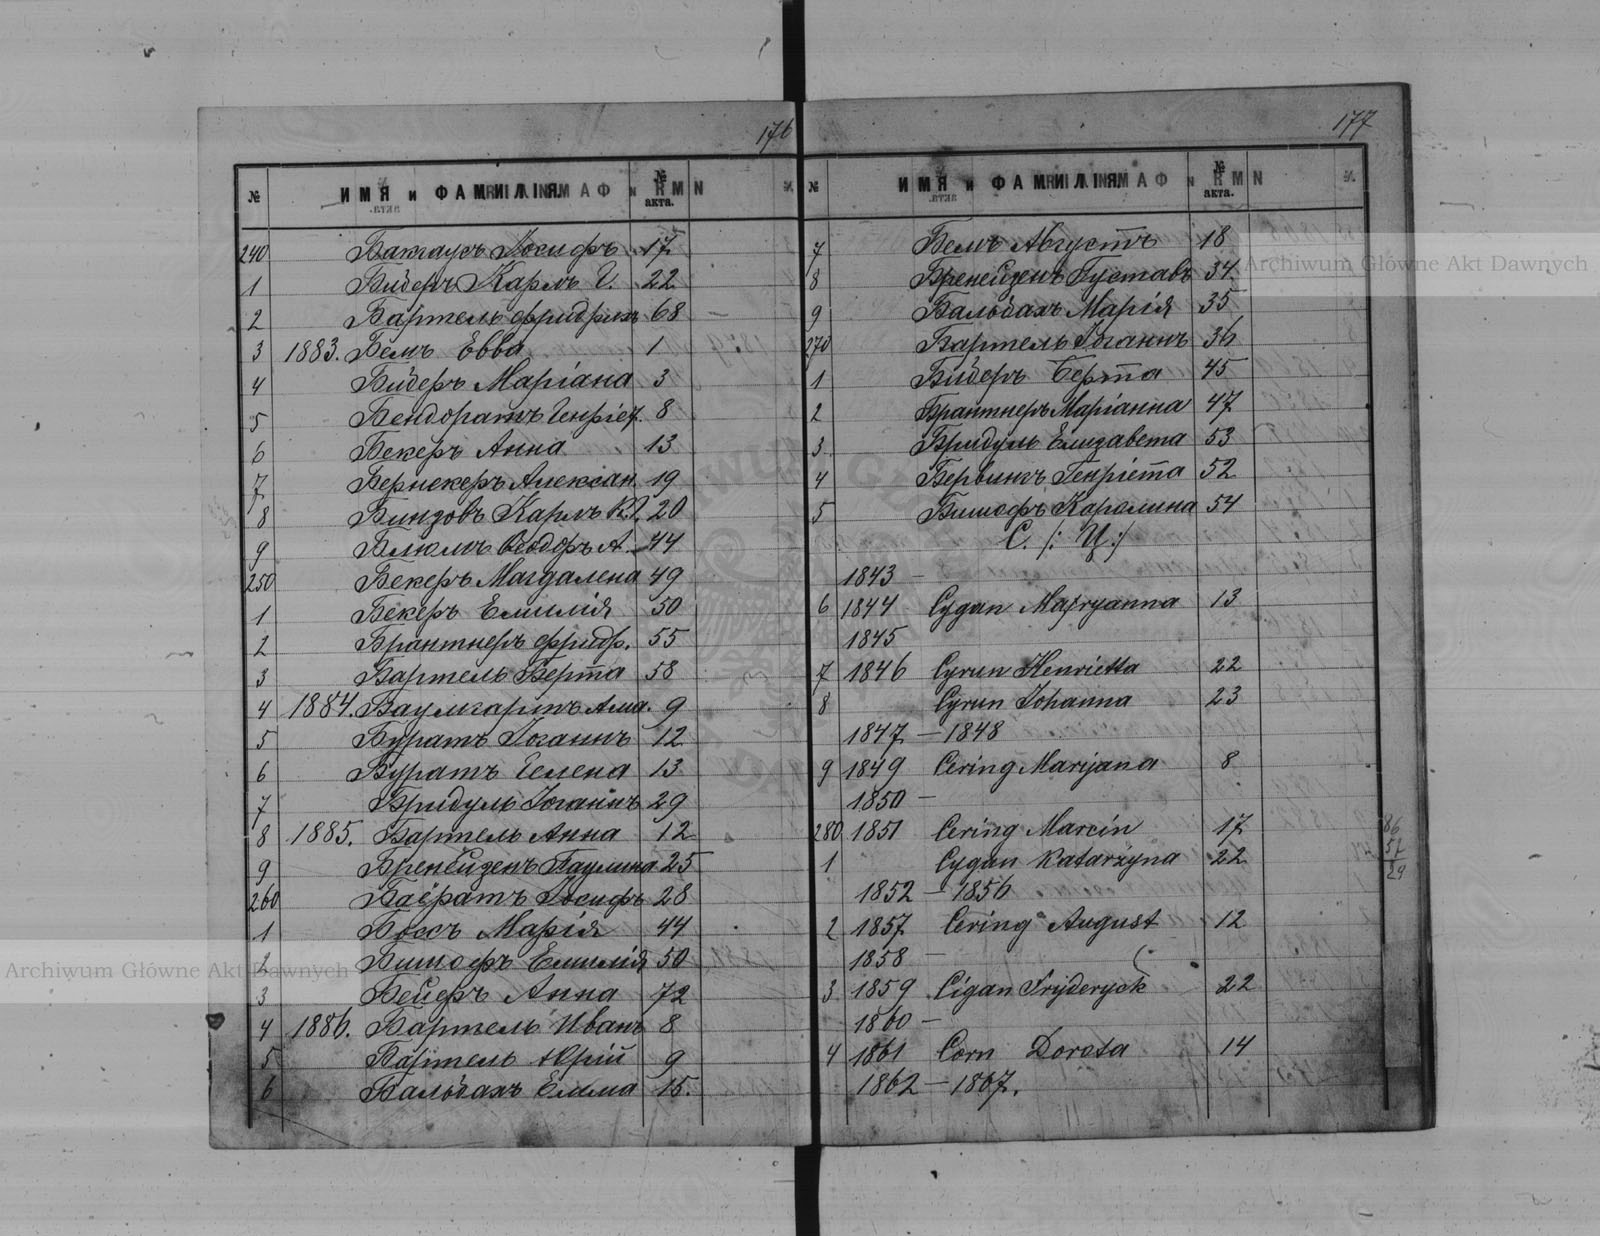 176
№ ИМЯ и ФАМИЛІЯ № акта.
240 Бакгаусъ Іосифъ 17
1 Бидеръ Карлъ Г. 22
2 Бартель Фридрихъ 68
3 1883. Бемъ Евва 1
4 Бидеръ Маріана 3
5 Бендоратъ Генріет. 8
6 Бекеръ Анна 13
7 Бернекеръ Алексан. 19
8 Биндовъ Карлъ 20
9 Блюмъ Ѳеодоръ А. 44
250 Бекеръ Магдалена 49
1 Бекеръ Емилія 50
2 Брантнеръ Фридр. 55
3 Бартель Берта 58
4 1884. Баумгартъ Ама. 9
5 Буратъ Іоганнъ 12
6 Буратъ Гелена 13
7 Бридуль Іоганнъ 29
8 1885. Бартель Анна 12
9 Бренейзенъ Паулина 25
260 Іосифъ 28
1 Боссъ Марія 44
2 Бишофъ Емилія 50
3 Бейеръ Анна 72
4 1886. Бартель Иванъ 8
5 Бартель Юрій 9
6 Бальбахъ Емма 15.
177
№ ИМЯ и ФАМИЛІЯ № акта.
7 Бемъ Августъ 18
8 Бренейзенъ Густавъ 34
9 Бальбахъ Марія 35
270 Бартель Іоганнъ 36
1 Бидеръ Берта 45
2 Брантнеръ Маріанна 47
3 Бридуль Елизавета 53
4 Генріета 52
5 Бишофъ Каролина 54
С. /: Ц :/
1843 —
6 1844 Cygan Maryanna 13
1845
7 1846 Cyrun Henrietta 22
8 Cyrun Johanna 23
1847 — 1848
9 1849 Cering Marijana 8
1850 —
280 1851 Cering Marcin 17
1 Cygan Katarzyna 22
1852 — 1856
2 1857 Cering August 12
1858 —
3 1859 Cigan Fryderyck 22
1860 —
4 1861 Corn Dorota 14
1862 — 1867.
86
57
29
Archiwum Główne Akt Dawnych
Archiwum Główne Akt Dawnych